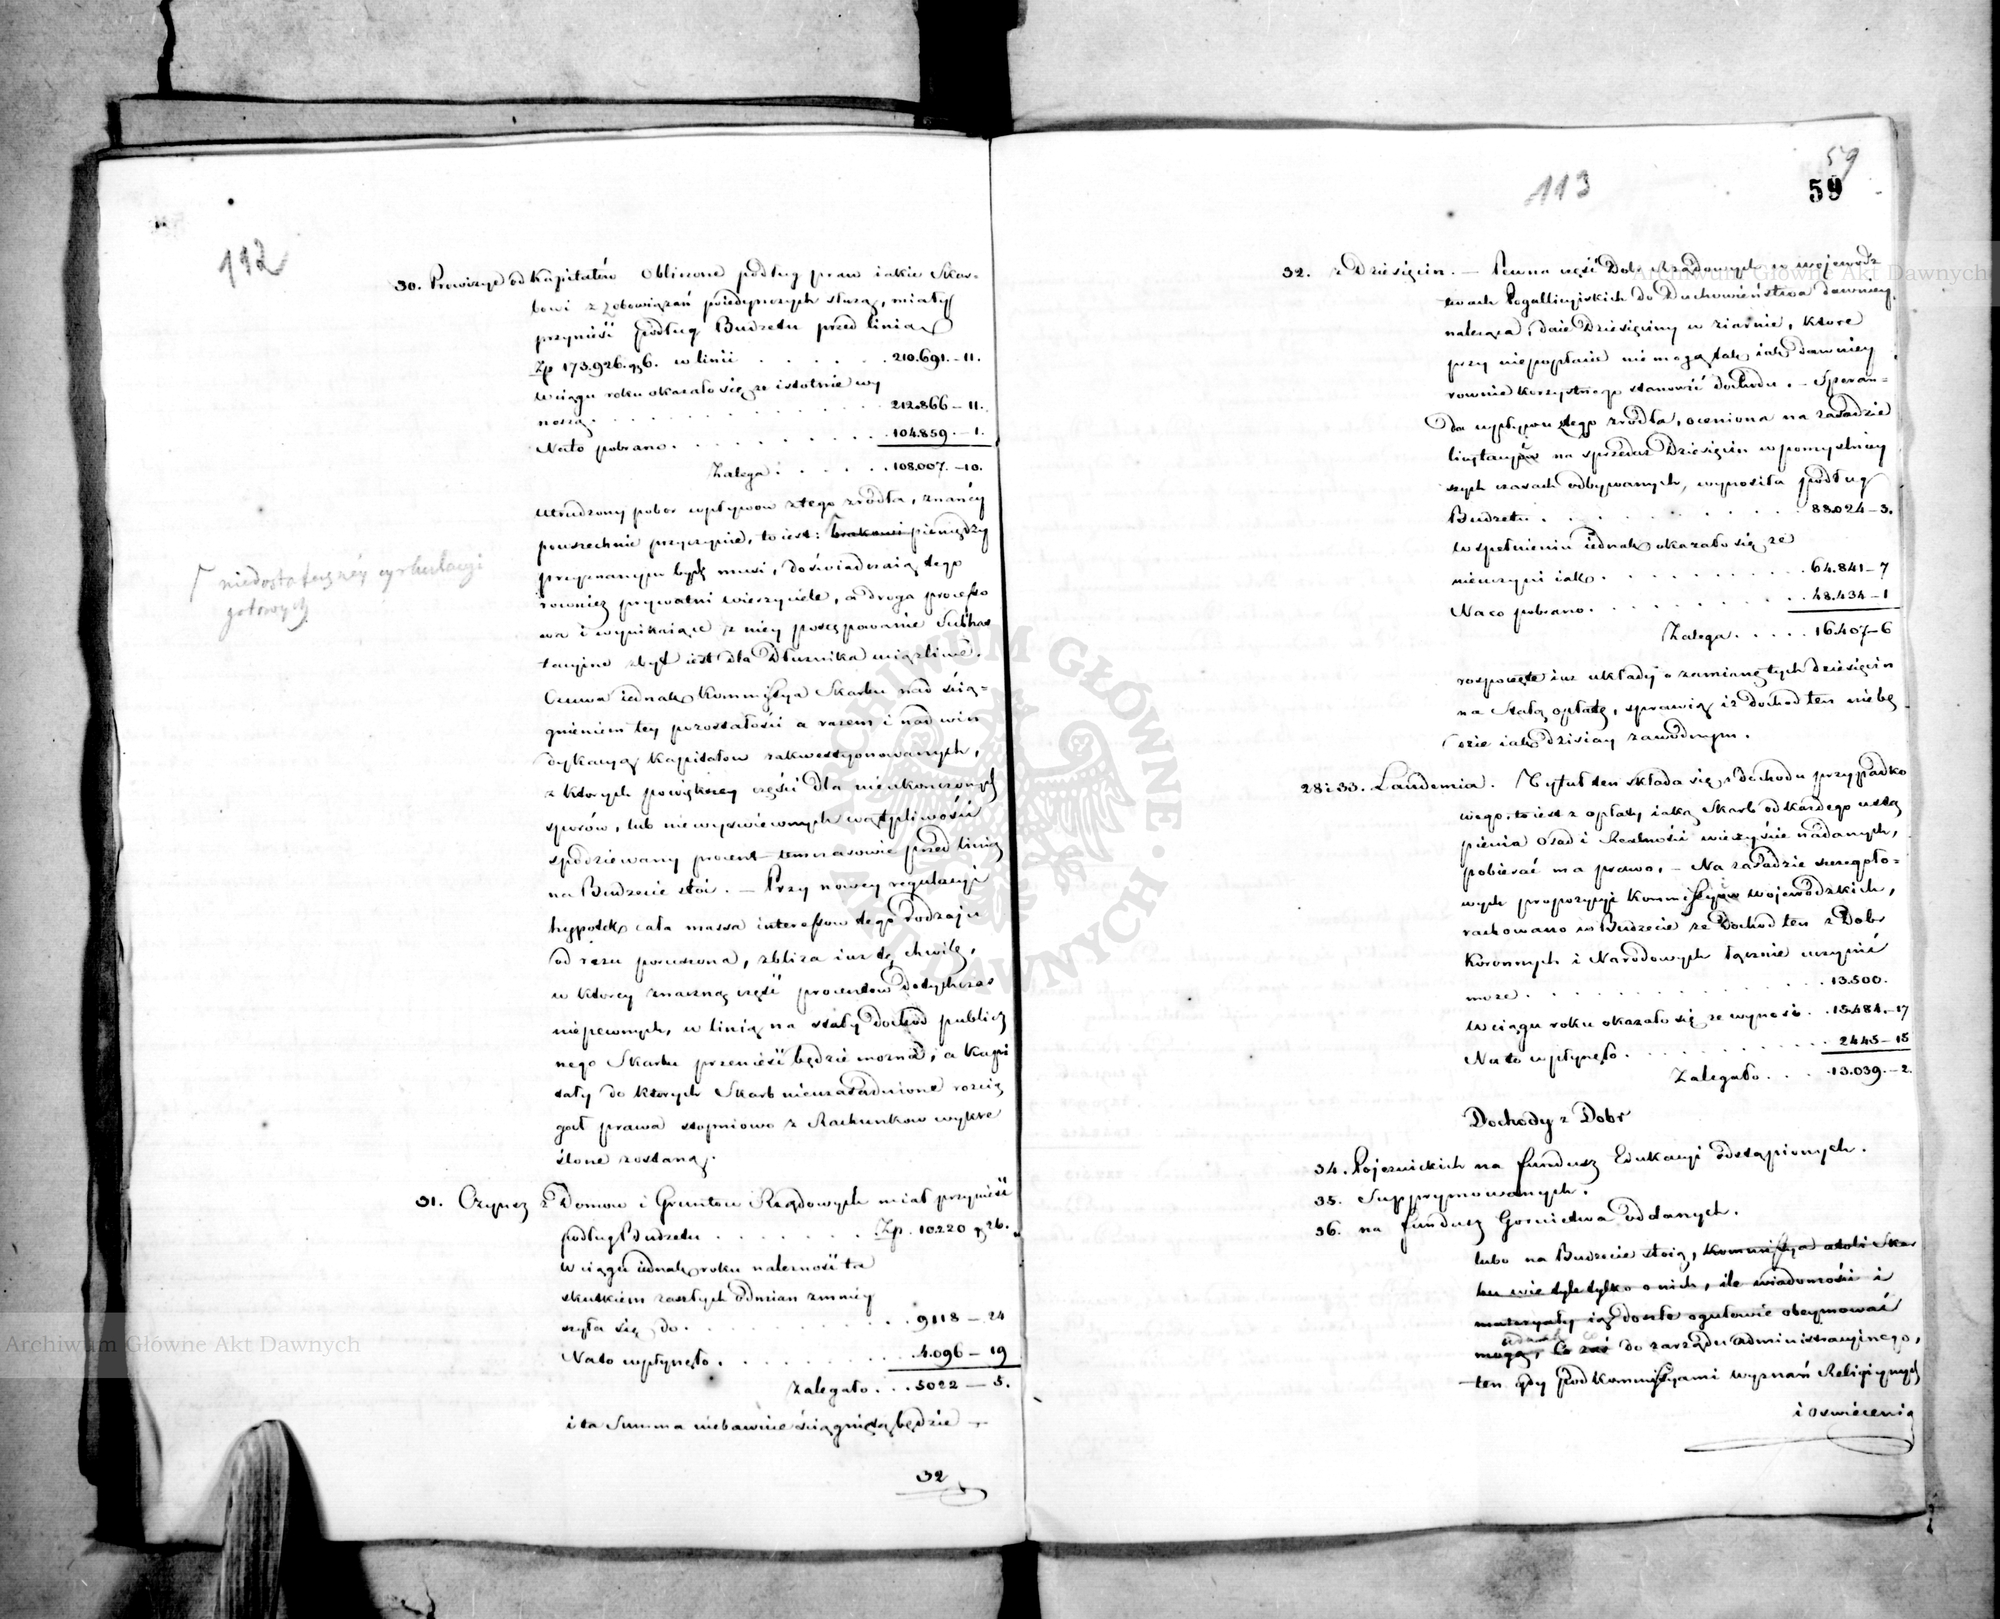 112
30. Prowizye od Kapitałów Obliczone podług praw iakie Skar-
bowi z zobowiązań poiedynczych służą, miały
przynieść podług Budżetu przed linią
Zp 173.926. g 6. w linii . . . . . . 210.691.-11.
W ciągu roku okazało się że istotnie wy
noszą . . . . . . . . . . 212.866-11.
Na to pobrano . . . . . . . . 104.859.-1.
Zalega . . . . . . 108.007.-10.
Utrudzony pobór wpływów z tego źródła, znaney
powszechnie przyczynie, to iest: brakowi pieniędzy
niedostateczney cyrkulacyi
gotowych
przyznanym bydź musi, doświadczaią tego
również prywatni wierzyciele, a droga proceſso
wa i wynikaiące z niey postępowanie Subhas
tacyine zbyt iest dla Dłużnika uciążliwe.
Czuwa iednak Kommiſsya Skarbu nad ścią-
gnieniem tey pozostałości a razem i nad win
dykacyą Kapitałów zakwestyonowanych,
z których powiększey części dla nieukończonych
sporów, lub niewyświeconych wątpliwości
spodziewany procent temczasowie przed linią
na Budżecie stoi. — Przy nowey regulacyi
hypotek cała massa intereſsów tego rodzaiu
od razu poruszona, zbliża iuż tę chwilę,
w którey znaczną część procentów dotychczas
niepewnych, w linią na stały dochód publicz
nego Skarbu przenieść będzie można, a Kapi
tały do których Skarb nieuzasadnione rością
gał prawa stopniowo z Rachunków wykre
ślone zostaną.
31. Czynsz z Domow i Gruntow Rządowych miał przynieść
podług Budżetu . . . . . . Zp. 10220 g 26.
W ciągu iednak roku należność ta
skutkiem zaszłych odmian zmniey
szyła się do . . . . . . . . 9118 - 24
Na to wpłynęło . . . . . . . 4.096 - 19
Zalegało . . . 5022 - 5.
i ta Summa niebawnie ściągniętą będzie
32
113
59
59
32. z Dziesięcin. — Pewna część Dobr Rządowych w wojewódz
twach Pogallicyiskich do Duchowieństwa dawniey
należąca, daie Dziesięciny w ziarnie, które
przy niepopłacie nie mogą tak iak dawniey
równie korzystnego stanowić dochodu. — Speran-
da wpływu z tego źródła, oceniona na zasadzie
licytacyów na sprzedaż Dziesięcin w pomyślniey
szych czasach odbywanych, wynosiła podług
Budżetu . . . . . . . . . . 88.024-3.
W spełnieniu iednak okazało się że
nieuczyni iak . . . . . . . . 64.841-7
Na co pobrano . . . . . . . . 48.434-1
Zalega . . . . . 16.407-6
rozpoczęte iuż układy o zamianę tych dziesięcin
na stałą opłatę, sprawią iż dochod ten nie bę
dzie iak dzisiay zawodnym.
28 i 33. Laudemia. Tytuł ten składa się z dochodu przypadko
wego, to iest z opłaty, iaką Skarb od każdego ustą
pienia Osad i Realności wieczyście nadanych,
pobierać ma prawo. — Na zasadzie szczegóło-
wych propozycyi Kommiſsyów Wojewódzkich,
rachowano w Budżecie że Dochod ten z Dobr
Koronnych i Narodowych łącznie uczynić
może . . . . . . . . . . . 13.500.
W ciągu roku okazało się że wynosi . . 15.484.-17
Na to wpłynęło . . . . . . . . 2445-15
Zalegało . . . . 13.039.-2.
Dochody z Dobr
34. Pojezuickich na fundusz Edukacyi odstąpionych.
35. Supprymowanych.
36. na fundusz Gornictwa oddanych.
lubo na Budżecie stoią, Kommiſsya atoli Skar
bu wie tyle tylko o nich, ile wiadomości i
materyały iey doszłe ogułowie obeymować
mogą, Co zaś do zarządu administracyinego,
ten gdy pod Kommiſsyami Wyznań Religiynych
i Oświecenia